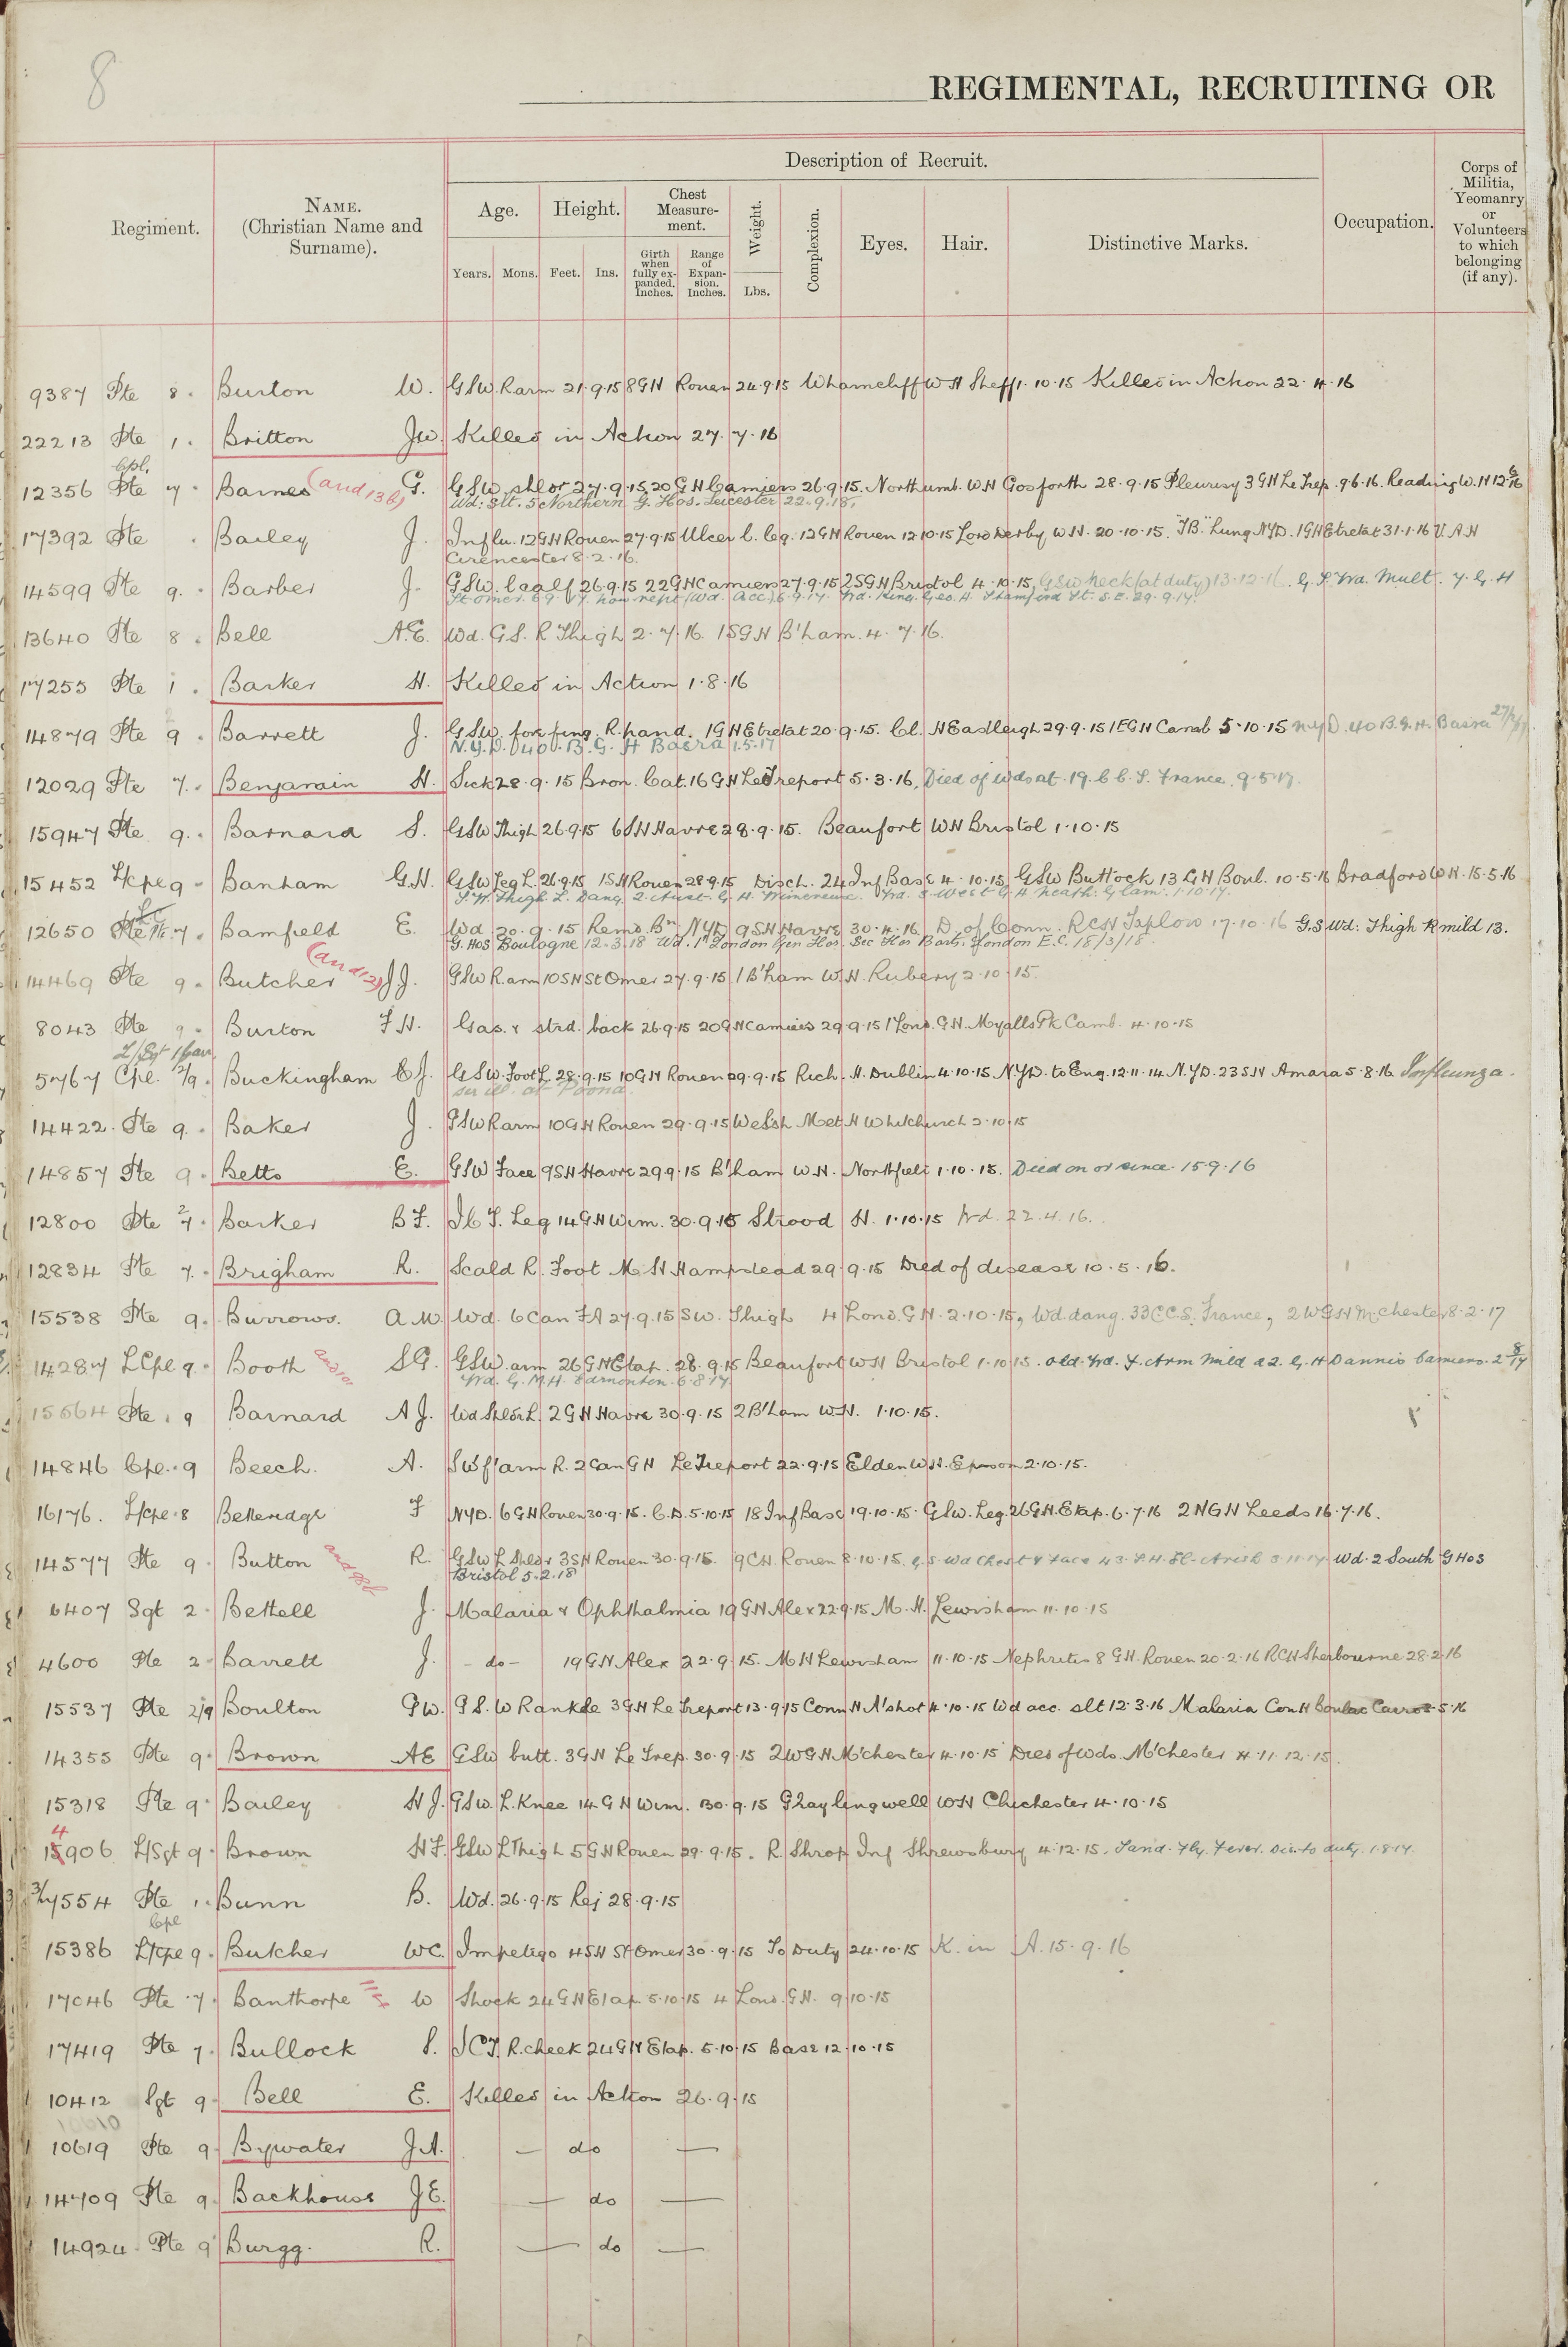 8
REGIMENTAL, RECRUITING OR
Regiment.
NAME.
(Christian Name and
Surname).
Description of Recruit.
Age.
Height.
Chest
Measure-
ment.
Weight.
Complexion.
Eyes.
Hair.
Distinctive Marks.
Occupation.
Corps of
Militia,
Yeomanry
or
Volunteers
to which
belonging
(if any).
Years.
Mons.
Feet.
Ins.
Girth
when
fully ex-
panded.
Inches.
Range
of
Expan-
sion.
Inches.
Lbs.
9387 Pte 8. Burton W. GSW Rarm 21.9.15 8GH Rouen 24.9.15 Wharncliff WH Sheff 1.10.15 Killed in Action 22.4.16
22213 Pte 1. Britton JW. Killed in Action 27.7.16
Cpl.
12356 Pte 7. Barnes (and 138) G. GSW shldr 27.9.15 20 GH Camiers 26.9.15. Northumb. WH Gosforth 28.9.15 Pleurisy 3GH Le Trep. 9.6.16. Reading W.H 12.6.16
Wd: Slt. 5 Northern G. Hos. Leicester 22.9.18.
17392 Pte . Bailey J. Influ. 12GH Rouen 27.9.15 Ulcer l. leg. 12GH Rouen 12.10.15 Lord Derby WH. 20.10.15. "TB." Lung NYD. 1GH Etretat 31.1.16 V.A.H
Cirencester 8.2.16.
14599 Pte 9. Barber J. GSW. l calf 26.9.15 22GH Camiers 27.9.15 2SGH Bristol 4.10.15, GSW neck (at duty) 13.12.16. G.S. Wd. Mult. 7. G.H
St Omer. 6.9.17. now rept (Wd. Acc) 6.9.17. Wd. King Geo. H. Stamford St. S.E. 29.9.17.
13640 Pte 8. Bell A.E. Wd. G.S. R Thigh 2.7.16. 1SGH B'ham. 4.7.16.
17255 Pte 1. Barker H. Killed in Action 1.8.16
14879 Pte 9. Barrett J. GSW. fore fing. R.hand. 1GH Etretat 20.9.15. Cl. H Eadleigh 29.9.15 1EGH Camb 5.10.15 NYD. 40 B.G.H. Basra
N.Y.D. 40. B.G.H Basra 1.5.17
12029 Pte 7. Benjamin H. Sick 28.9.15 Bron. Cat. 16GH Le Treport 5.3.16, Died of wds at. 19. C.C.S. France. 9.5.17.
15947 Pte 9. Barnard S. GSW Thigh 26.9.15 6SH Havre 28.9.15. Beaufort WH Bristol 1.10.15
15452 L/cple 9. Banham G.H. GSW Leg L. 26.9.15 1SH Rouen 28.9.15 Disch. 24 Inf Base 4.10.15, GSW Buttock 13 GH Boul. 10.5.16 Bradford WH. 15.5.16
S.W. Thigh L. Dang 2 Aust. G.H. Wimereux. Wd. 3. West G.H Neath. Glam. 1.10.17.
12650 Pte 7. Bamfield E. Wd. 20.9.15 Remd. Bn NYD 9SH Havre 30.4.16. D. of Conn. RCH Taplow 17.10.16 G.S Wd: Thigh R mild 13.
G. Hos Boulogne 12.3.18 Wd. 1st London Gen Hos. Sec Hos Barts. London E.C. 18/3/18.
14469 Pte 9. Butcher (and 12) J.J. GSW R.arm 10SH St Omer 27.9.15 1 B'ham W.H. Rubery 2.10.15.
8043 Pte 9. Burton F.H. Gas. & strd. back 26.9.15 20GH Camiers 29.9.15 1 Lond. G.H. Myatts Pk Camb. 4.10.15
5767 Cpl. 2/9. Buckingham C J. GSW. Foot L. 28.9.15 10GH Rouen 29.9.15 Rich. H. Dublin 4.10.15, NYD. to Eng. 12.11.14. N.YD. 23SH Amara 5.8.16. Influenza.
14422. Pte 9. Baker J. GSW R.arm 10GH Rouen 29.9.15 Welsh Met H Whitchurch 2.10.15
14857 Pte 9. Betts E. GSW Face 9SH Havre 29.9.15 B'ham W.H. Northfield 1.10.15. Died on or since 15.9.16
12800 Pte 2/7. Barker B F. I C T. Leg 14GH Wim. 30.9.15 Strood H. 1.10.15 Wd. 22.4.16.
12834 Pte 7. Brigham R. Scald R. Foot M.H Hampstead 29.9.15 Died of disease 10.5.16.
15538 Pte 9. Burrows. A.W. Wd. 6 Can FA 27.9.15 SW. Thigh 4 Lond. G.H. 2.10.15, Wd. dang. 33 CCS. France, 2WGH M'chester 8.2.17
14287 LCple 9. Booth SG. GSW. arm 26GH Etap. 28.9.15 Beaufort WH Bristol 1.10.15. Old. Wd. F. Arm Mild 22. G.H Dannes Camiers. 2 8/17
Wd. G. M.H. Edmonton. 6.8.17.
15564 Pte 9 Barnard A J. Wd Shldr L. 2GH Havre 30.9.15 2 B'ham WH. 1.10.15.
14846 Cple. 9 Beech. A. SW f'arm R. 2 Can GH Le Treport 22.9.15 Elden W.H. Epsom 2.10.15.
16176. L/cple 8 Betteridge F NYD. 6GH Rouen 30.9.15. C.D. 5.10.15 18 Inf Base 19.10.15. GSW. Leg. 26GH. Etap. 6.7.16 2NGH Leeds 16.7.16.
14577 Pte 9 Button R. GSW L Shldr 3SH Rouen 30.9.15. 9CH. Rouen 8.10.15. G.S. Wd Chest & Face 43. F.H. Wd. 2 South G Hos
Bristol 5.2.18
6407 Sgt 2. Bettell J. Malaria & Ophthalmia 19GH Alex 22.9.15 M.H. Lewisham 11.10.15
4600 Pte 2. Barrett J. - do - 19GH Alex 22.9.15. MH Lewisham 11.10.15 Nephritis 8GH. Rouen 20.2.16 RCH Sherbourne 28.2.16
15537 Pte 2/9 Boulton GW. GS.W R ankle 3GH Le Treport 13.9.15 Conn H A'shot 4.10.15 Wd acc. slt 12.3.16 Malaria Con H Boulac Cairo 5.16
14355 Pte 9. Brown AE GSW butt. 3GH Le Trep. 30.9.15 2WGH M'chester 4.10.15 Died of wds. M'chester 4.11.12.15.
15318 Pte 9. Bailey H J. GSW. L. Knee 14GH Wim. 30.9.15 Graylingwell WH Chichester 4.10.15
4
15906 L/Sgt 9. Brown H F. GSW L Thigh 5GH Rouen 29.9.15. R. Shrop Inf Shrewsbury 4.12.15. Sand. Fly. Fever. Dis. to duty. 1.8.17.
3/7554 Pte 1. Bunn B. Wd. 26.9.15 Rej 28.9.15
Cpl
15386 L/cple 9. Butcher WC. Impetigo 4SH St Omer 30.9.15 To Duty 24.10.15 K. in A. 15.9.16
17046 Pte 7. Banthorpe W Shock 24GH Etap 5.10.15 4 Lond. GH. 9.10.15
17419 Pte 7. Bullock S. ICT. R.cheek 24GH Etap. 5.10.15 Base 12.10.15
10412 Sgt 9 Bell E. Killed in Action 26.9.15
10619 Pte 9. Bywater J.A. — do —
14709 Pte 9. Backhouse J E. — do —
14924. Pte 9 Burgg. R. — do —